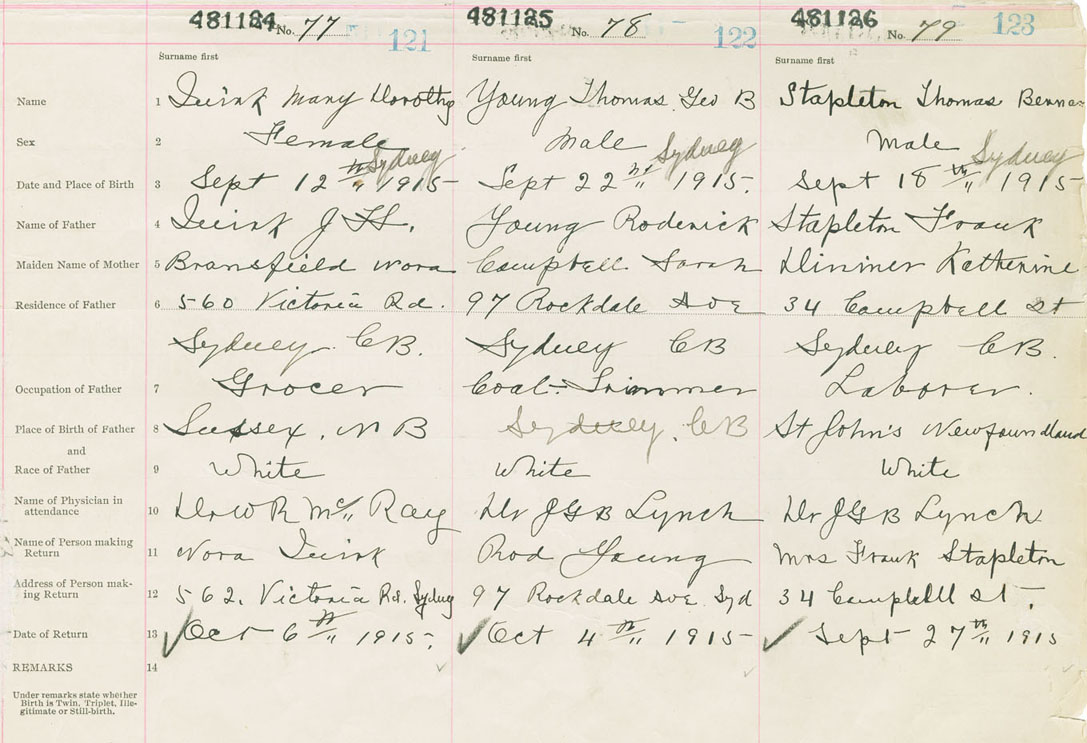 481124 No. 77 121 481125 No. 78 122 481126 No. 79 123
Surname first Surname first Surname first
Name 1 Quirk Mary Dorothy Young Thomas Geo B Stapleton Thomas
Sex 2 Female Male Male
Sydney Sydney Sydney
Date and Place of Birth 3 Sept 12th 1915 Sept 22nd 1915. Sept 18th 1915
Name of Father 4 Quirk J H. Young Roderick Stapleton Frank
Maiden Name of Mother 5 Bransfield Nora Campbell Sarah Dinner Katherine
Residence of Father 6 560 Victoria Rd. 97 Rockdale Ave 34 Campbell St
Sydney C B. Sydney C B Sydney C B.
Occupation of Father 7 Grocer Coal-Trimmer Laborer.
Place of Birth of Father 8 Sussex, N B Sydney, C B St John's Newfoundland
and
Race of Father 9 White White White
Name of Physician in
attendance 10 Dr W R McRay Dr J G B Lynch Dr J G B Lynch
Name of Person making
Return 11 Nora Quirk Rod Young Mrs Frank Stapleton
Address of Person mak-
ing Return 12 562, Victoria Rd. Sydney 97 Rockdale Ave Syd 34 Campbell St.
Date of Return 13 Oct 6th 1915. Oct 4th 1915 Sept 27th 1915
REMARKS 14
Under remarks state whether
Birth is Twin, Triplet, Ille-
gitimate or Still-birth.